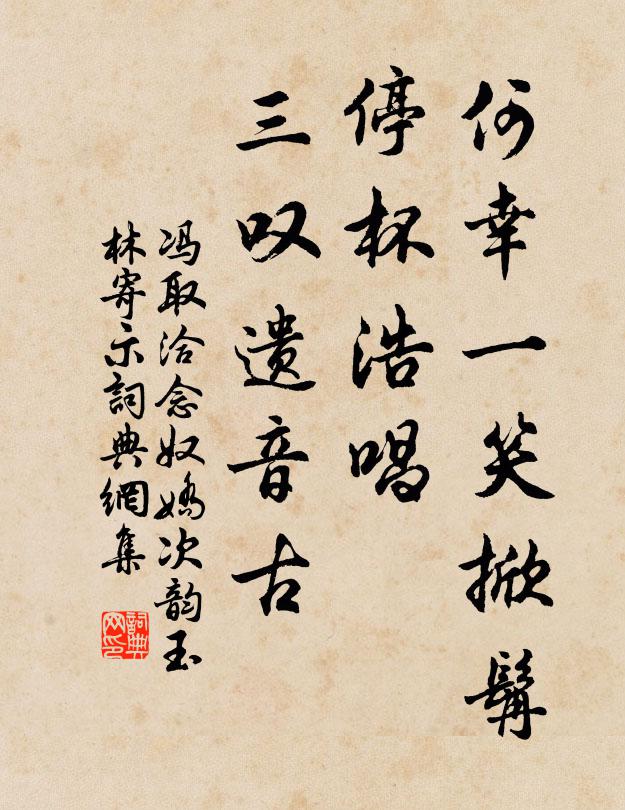 何幸一笑掀髯
停杯浩唱
三叹遗音古
冯取洽念奴娇次韵玉
林寄示詞典網集
詞典网印